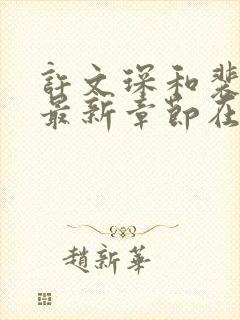 許文琛和裴
最新章節在
趙新華